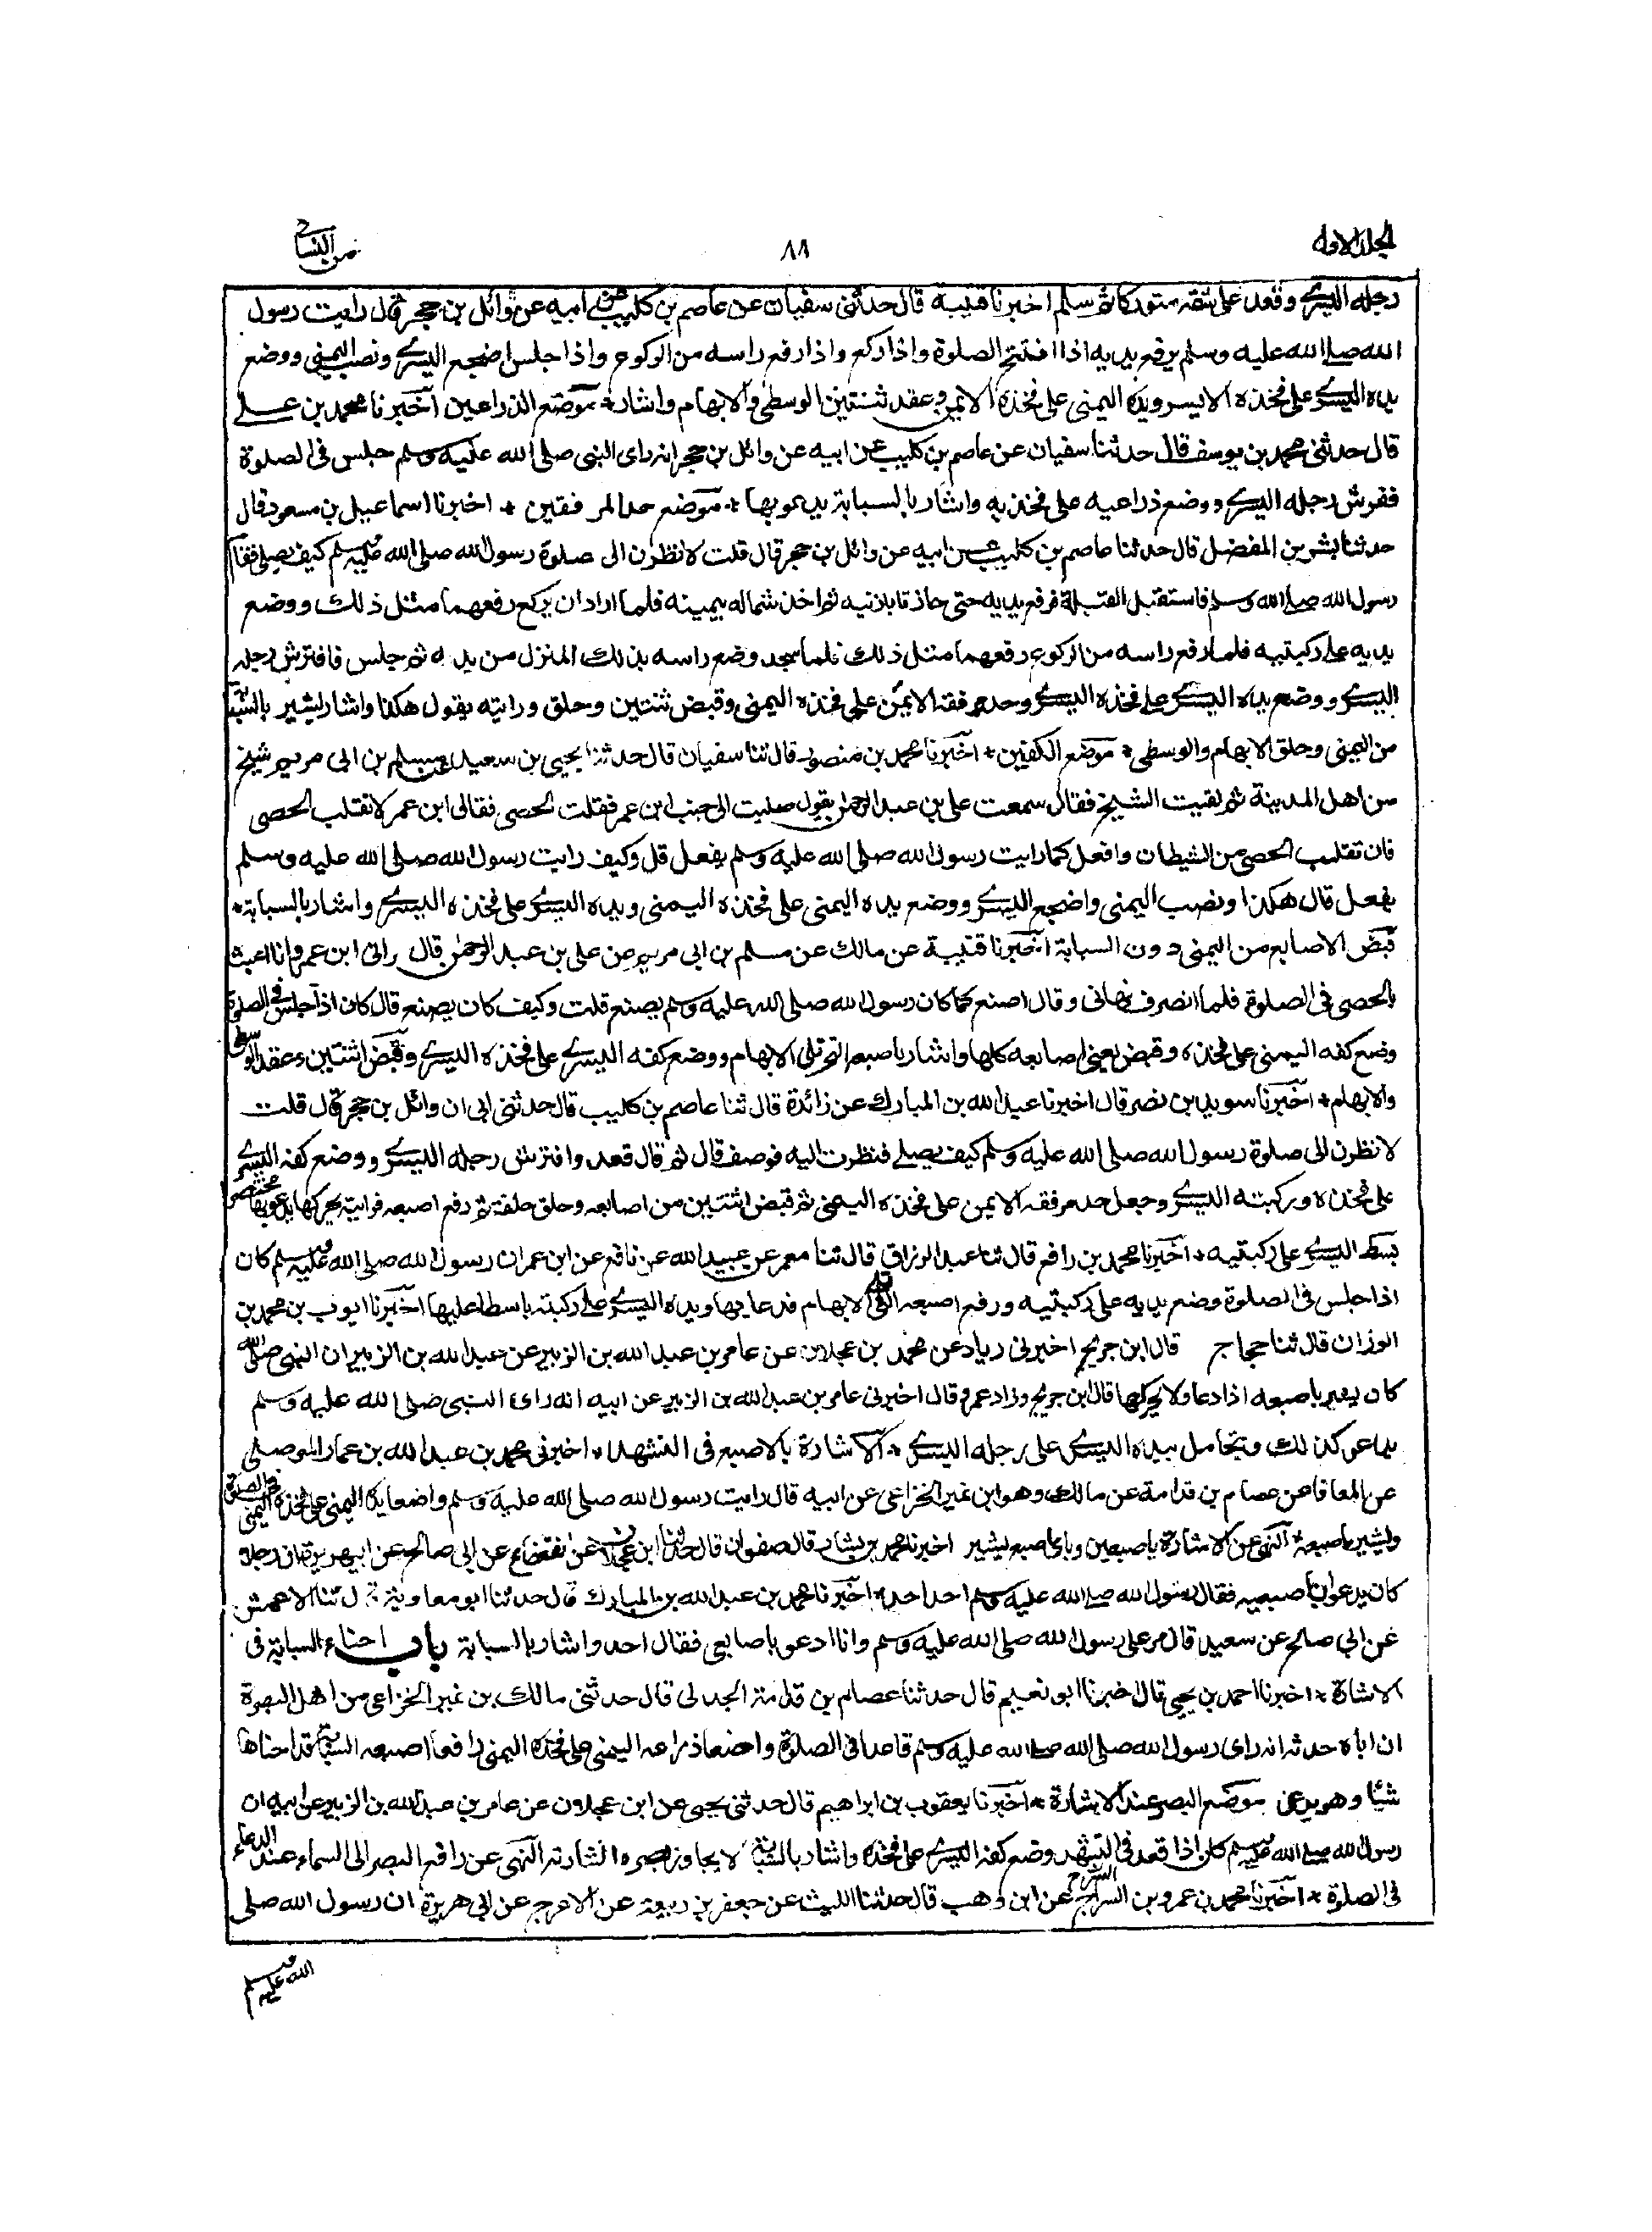 الجلد الاول
٨٨
من النسائی
رجله اليسرے وقعد على شقه متوركا ثم سلم اخبرنا قتيبة قال حدثنی سفيان عن عاصم بن كليب عن ابيه عن وائل بن حجر قال رايت رسول
الله صلے الله عليه وسلم يرفع يديه اذا افتتح الصلوة واذا ركع واذا رفع راسه من الركوع واذا جلس اضجع اليسرے ونصب اليمنی ووضع
يده اليسرے على فخذه الايسر ويده اليمنى على فخذه الايمن وعقد ثنتين الوسطى والابهام واشار * موضع الذراعين اخبرنا محمد بن علے
قال حدثنی محمد بن يوسف قال حدثنا سفيان عن عاصم بن كليب عن ابيه عن وائل بن حجر انه رای النبی صلى الله عليه وسلم جلس فی الصلوة
ففرش رجله اليسرے ووضع ذراعيه على فخذيه واشار بالسبابة يدعو بها * موضع حد المرفقين * اخبرنا اسماعيل بن مسعود قال
حدثنا بشر بن المفضل قال حدثنا عاصم بن كليب عن ابيه عن وائل بن حجر قال قلت لانظرن الى صلوة رسول الله صلى الله عليه وسلم كيف يصلی فقام
رسول الله صلے الله وسلم فاستقبل القبلة فرفع يديه حتى حاذتا باذنيه ثم اخذ شماله بيمينه فلما اراد ان يركع رفعهما مثل ذلك ووضع
يديه على ركبتيه فلما رفع راسه من الركوع رفعهما مثل ذلك فلما سجد وضع راسه بذلك المنزل من يديه ثم جلس فافترش رجله
اليسرے ووضع يده اليسرے على فخذه اليسرے وحد مرفقه الايمن على فخذه اليمنى وقبض ثنتين وحلق ورايته يقول هكذا واشار بشير بالسبابة
من اليمنى وحلق الابهام والوسطى * موضع الكفين * اخبرنا محمد بن منصور قال ثنا سفيان قال حدثنا يحيى بن سعيد عن مسلم بن ابی مريم شيخ
من اهل المدينة ثم لقيت الشيخ فقال سمعت على بن عبد الرحمن يقول صليت الى جنب ابن عمر فقلت الحصى فقال لی ابن عمر لا تقلب الحصى
فان تقليب الحصى من الشيطان وافعل كما رايت رسول الله صلى الله عليه وسلم يفعل قل وكيف رايت رسول الله صلى الله عليه وسلم
يفعل قال هكذا ونصب اليمنى واضجع اليسرے ووضع يده اليمنى على فخذه اليمنى ويده اليسرے على فخذه اليسرے واشار بالسبابة *
قبض الاصابع من اليمنى دون السبابة اخبرنا قتيبة عن مالك عن مسلم بن ابی مريم عن على بن عبد الرحمن قال رانی ابن عمر وانا اعبث
بالحصى فی الصلوة فلما انصرف نهانی وقال اصنع كما كان رسول الله صلى الله عليه وسلم يصنع قلت وكيف كان يصنع قال كان اذا جلس فی الصلوة
وضع كفه اليمنى على فخذه وقبض يعنی اصابعه كلها واشار باصبعه التی تلی الابهام ووضع كفه اليسرے على فخذه اليسرے وقبض اثنتين وعقد الوسطى
والابهام * اخبرنا سويد بن نصر قال اخبرنا عبد الله بن المبارك عن زائدة قال ثنا عاصم بن كليب قال حدثنی ابی ان وائل بن حجر قال قلت
لانظرن الى صلوة رسول الله صلى الله عليه وسلم كيف يصلے فنظرت اليه فوصف قال ثم قال قعد وافترش رجله اليسرے ووضع كفه اليسرے
على فخذه وركبته اليسرے وجعل حد مرفقه الايمن على فخذه اليمنى ثم قبض اثنتين من اصابعه وحلق حلقة ثم رفع اصبعه فرايته يحركها يدعو بها مختصر
بسط اليسرے على ركبتيه * اخبرنا محمد بن رافع قال ثنا عبد الرزاق قال ثنا معمر عن عبيد الله عن نافع عن ابن عمر ان رسول الله صلى الله عليه وسلم كان
اذا جلس فی الصلوة وضع يديه على ركبتيه ورفع اصبعه التی تلی الابهام فدعا بها ويده اليسرے على ركبته باسطها عليها اخبرنا ايوب بن محمد بن
الوزان قال ثنا حجاج قال ابن جريج اخبرنی زياد عن محمد بن عجلان عن عامر بن عبد الله بن الزبير عن عبد الله بن الزبير ان النبی صلى الله
كان يشير باصبعه اذا دعا ولا يحركها قال ابن جريج وزاد عمرو قال اخبرنی عامر بن عبد الله بن الزبير عن ابيه انه رای النبی صلى الله عليه وسلم
يدعو كذلك ويتحامل بيده اليسرے على رجله اليسرے * الاشارة بالاصبع فی التشهد * اخبرنی محمد بن عبد الله بن عمار الموصلی
عن المعافا عن عصام بن قدامة عن مالك وهو ابن نمير الخزاعی عن ابيه قال رايت رسول الله صلى الله عليه وسلم واضعا يده اليمنى على فخذه اليمنى فی الصلوة
ويشير باصبعه * النهی عن الاشارة باصبعين وبای اصبع يشير اخبرنا محمد بن بشار قال صفوان قال حدثنا ابن عجلان عن القعقاع عن ابی صالح عن ابی هريرة ان رجلا
كان يدعو باصبعيه فقال رسول الله صلے الله عليه وسلم احد احد * اخبرنا محمد بن عبد الله بن المبارك قال حدثنا ابو معاوية قال ثنا الاعمش
عن ابی صالح عن سعيد قال مر على رسول الله صلى الله عليه وسلم وانا ادعو باصابعی فقال احد واشار بالسبابة باب احناء السبابة فی
الاشارة * اخبرنا احمد بن يحيى قال اخبرنا ابو نعيم قال حدثنا عصام بن قدامة الجدلی قال حدثنی مالك بن نمير الخزاعی من اهل البصرة
ان اباه حدثه انه رای رسول الله صلى الله صلے الله عليه وسلم قاعدا فی الصلوة واضعا ذراعه اليمنى على فخذه اليمنى رافعا اصبعه السبابة قد احناها
شيئا وهو يدعو موضع البصر عند الاشارة * اخبرنا يعقوب بن ابراهيم قال حدثنی يحيى عن ابن عجلان عن عامر بن عبد الله بن الزبير عن ابيه ان
رسول الله صلے الله عليه وسلم كان اذا قعد فی التشهد وضع كفه اليسرے على فخذه واشار بالسبابة لا يجاوز بصره اشارته النهی عن رفع البصر الى السماء عند الدعاء
فی الصلوة * اخبرنا محمد بن عمرو بن السراج السرح عن ابن وهب قال حدثنا الليث عن جعفر بن ربيعة عن الاعرج عن ابی هريرة ان رسول الله صلى
الله عليه وسلم